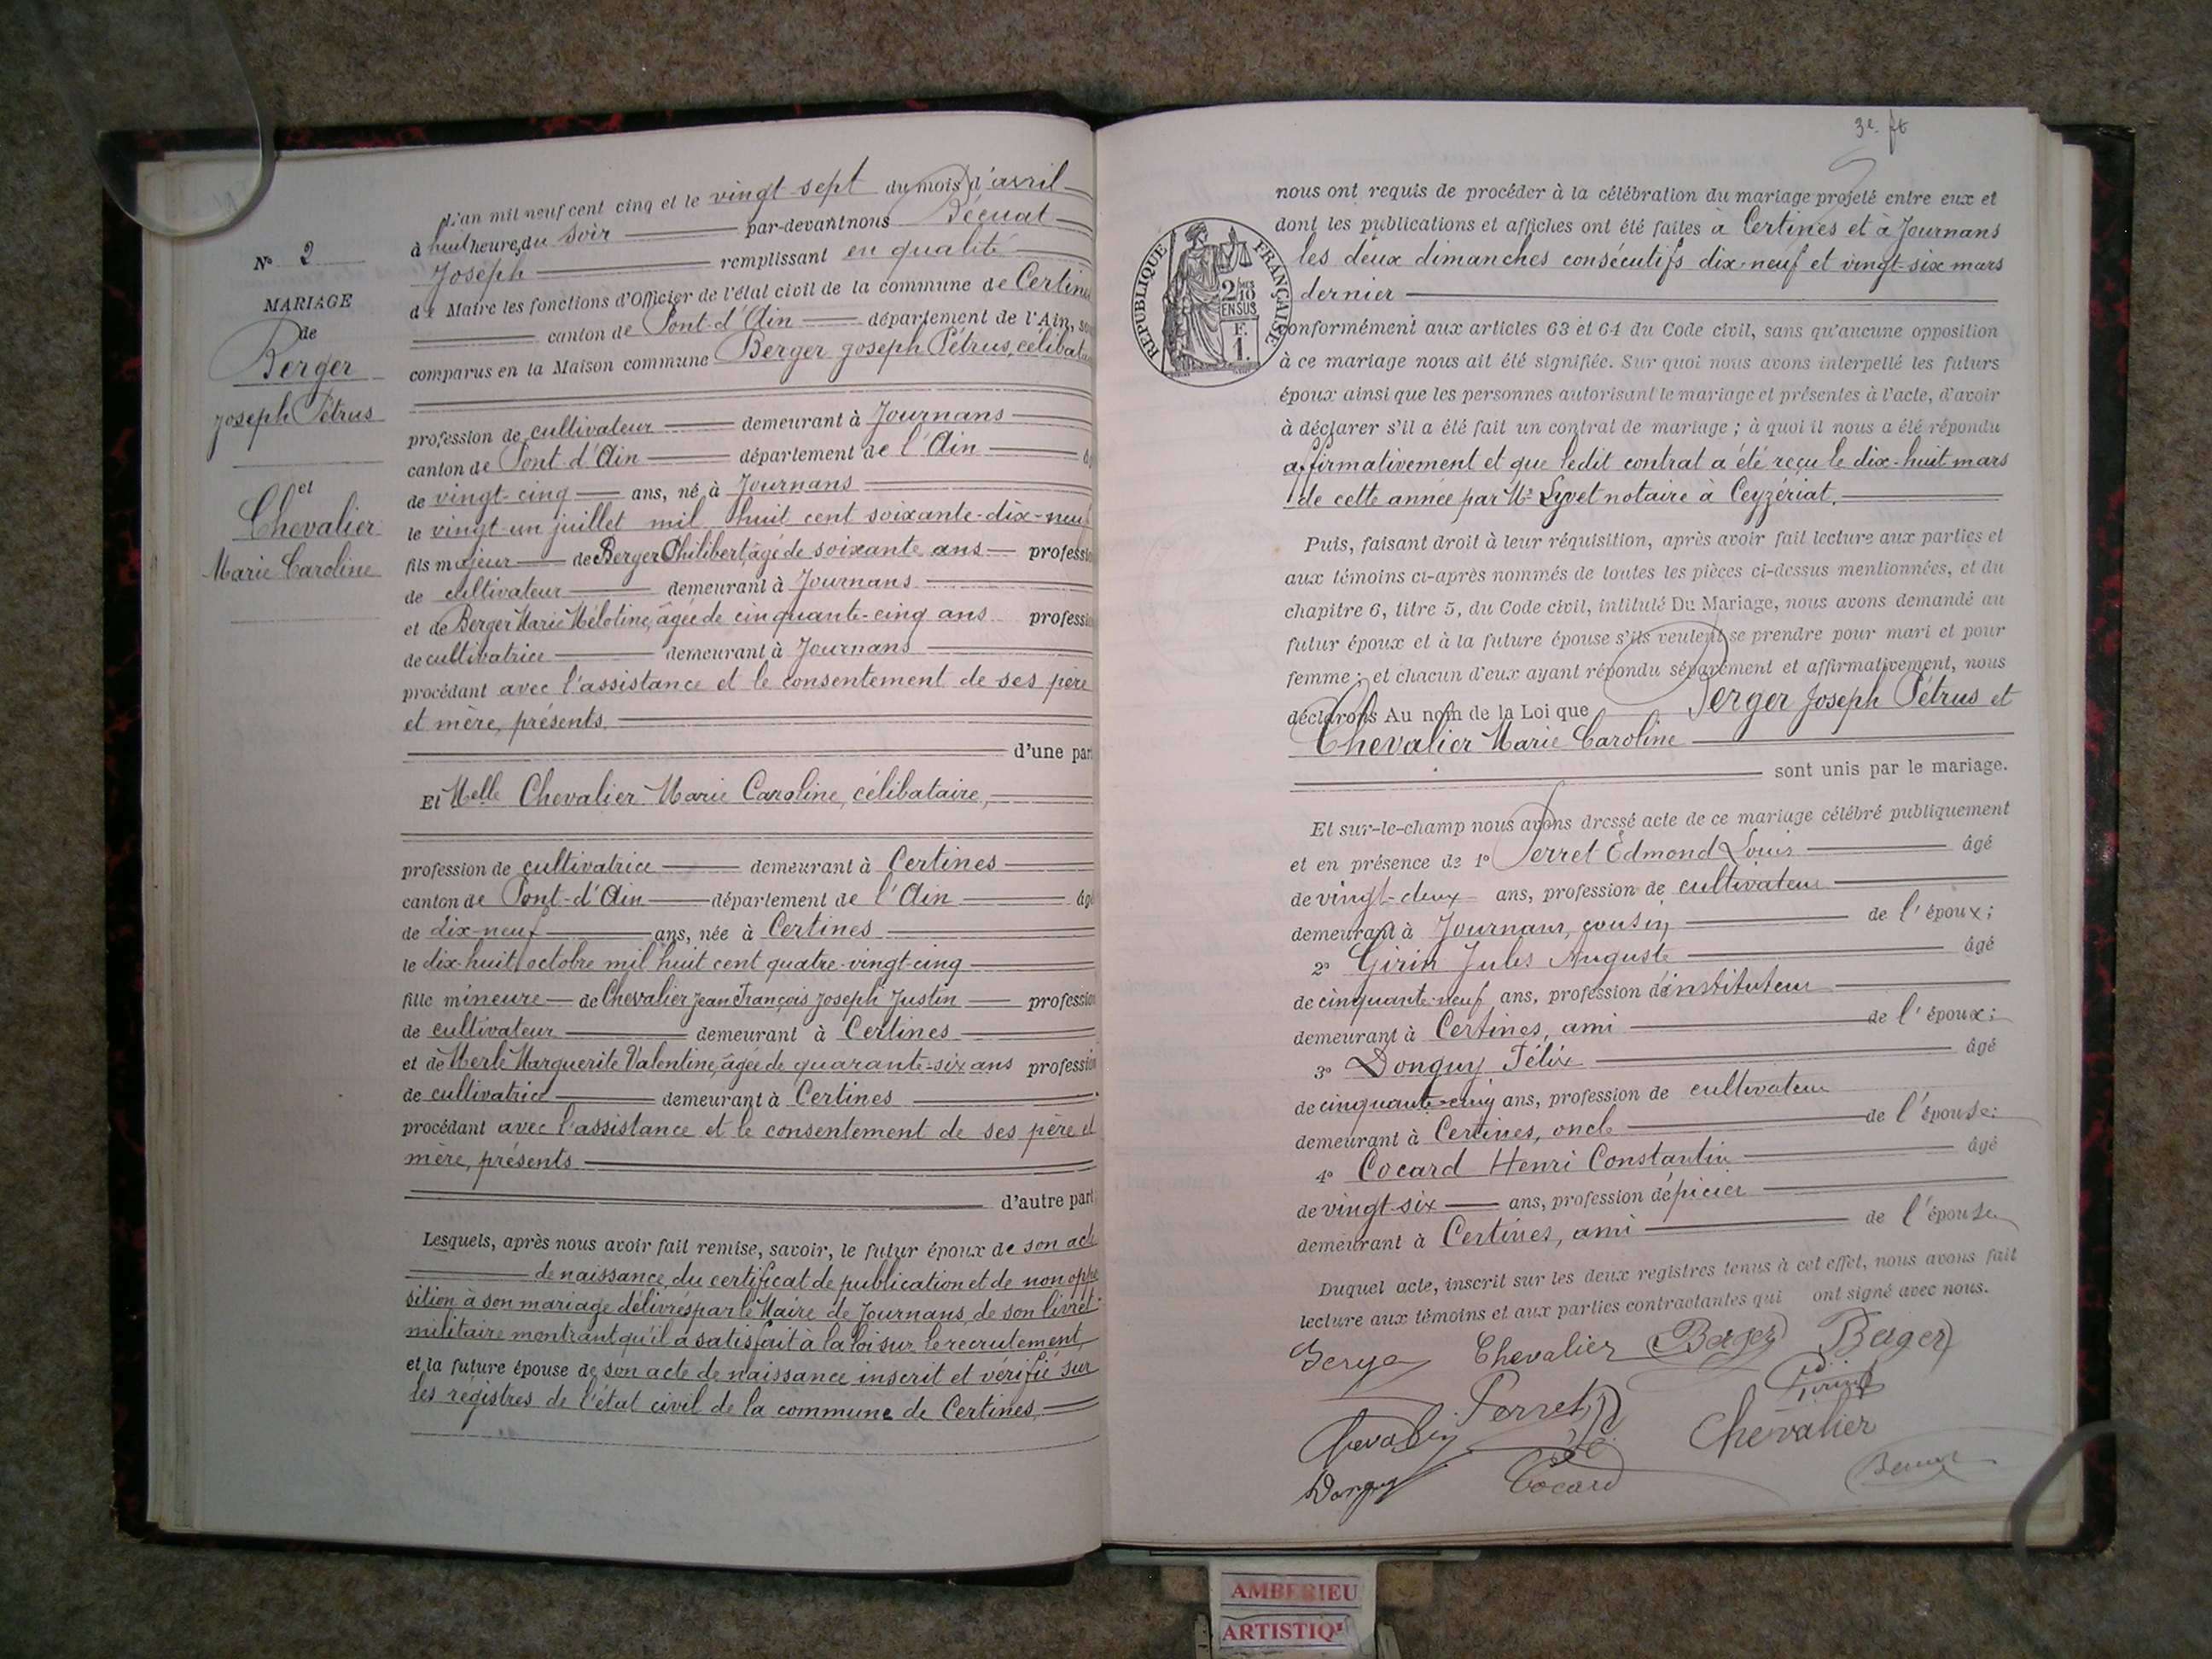 N° 2
MARIAGE
de
Berger
Joseph Pétrus
et
Chevalier
Marie Caroline
L'an mil neuf cent cinq et le vingt sept du mois d'avril
à huit heures du soir par-devant nous Bécuat
Joseph remplissant en qualité
de Maire les fonctions d'Officier de l'état civil de la commune de Certines
canton de Pont-d'Ain département de l'Ain, so
comparus en la Maison commune Berger Joseph Pétrus, célibatai
profession de cultivateur demeurant à Journans
canton de Pont-d'Ain département de l'Ain âg
de vingt-cinq ans, né à Journans
le vingt un juillet mil huit cent soixante-dix-neuf
fils majeur de Berger Philibert, âgé de soixante ans professio
de cultivateur demeurant à Journans
et de Berger Marie Mélotine, âgée de cinquante-cinq ans professio
de cultivatrice demeurant à Journans
procédant avec l'assistance et le consentement de ses père
et mère, présents
d'une part
Et Melle Chevalier Marie Caroline, célibataire,
profession de cultivatrice demeurant à Certines
canton de Pont-d'Ain département de l'Ain âgé
de dix-neuf ans, née à Certines
le dix-huit octobre mil huit cent quatre-vingt-cinq
fille mineure de Chevalier Jean François Joseph Justin profession
de cultivateur demeurant à Certines
et de Merle Marguerite Valentine, âgée de quarante-six ans professio
de cultivatrice demeurant à Certines
procédant avec l'assistance et le consentement de ses père et
mère, présents
d'autre part
Lesquels, après nous avoir fait remise, savoir, le futur époux de son acte
de naissance, du certificat de publication et de non oppo
sition à son mariage délivrés par le Maire de Journans, de son livret
militaire montrant qu'il a satisfait à la loi sur le recrutement,
et la future épouse de son acte de naissance inscrit et vérifié sur
les régistres de l'état civil de la commune de Certines,
3e ft
RÉPUBLIQUE FRANÇAISE
2/10
EN SUS
F.
1.
nous ont requis de procéder à la célébration du mariage projeté entre eux et
dont les publications et affiches ont été faites à Certines et à Journans
les deux dimanches consécutifs dix-neuf et vingt-six mars
dernier
conformément aux articles 63 et 64 du Code civil, sans qu'aucune opposition
à ce mariage nous ait été signifiée. Sur quoi nous avons interpellé les futurs
époux ainsi que les personnes autorisant le mariage et présentes à l'acte, d'avoir
à déclarer s'il a été fait un contrat de mariage ; à quoi il nous a été répondu
affirmativement et que ledit contrat a été reçu le dix-huit mars
de cette année par Me Lyvet notaire à Ceyzériat.
Puis, faisant droit à leur réquisition, après avoir fait lecture aux parties et
aux témoins ci-après nommés de toutes les pièces ci-dessus mentionnées, et du
chapitre 6, titre 5, du Code civil, intitulé Du Mariage, nous avons demandé au
futur époux et à la future épouse s'ils veulent se prendre pour mari et pour
femme ; et chacun d'eux ayant répondu séparément et affirmativement, nous
déclarons Au nom de la Loi que Berger Joseph Pétrus et
Chevalier Marie Caroline
sont unis par le mariage.
Et sur-le-champ nous avons dressé acte de ce mariage célébré publiquement
et en présence de 1° Perret Edmond Louis âgé
de vingt-deux ans, profession de cultivateur
demeurant à Journans, cousin de l'époux;
2° Girin Jules Auguste âgé
de cinquante-neuf ans, profession d'instituteur
demeurant à Certines, ami de l'époux;
3° Donguy Félix âgé
de cinquante-cinq ans, profession de cultivateur
demeurant à Certines, oncle de l'épouse;
4° Cocard Henri Constantin âgé
de vingt-six ans, profession d'épicier
demeurant à Certines, ami de l'épouse
Duquel acte, inscrit sur les deux registres tenus à cet effet, nous avons fait
lecture aux témoins et aux parties contractantes qui ont signé avec nous.
Berger Chevalier Berger Berger
Girin
Chevalier Perret Chevalier
Donguy Cocard
AMBERIEU
ARTISTIQ